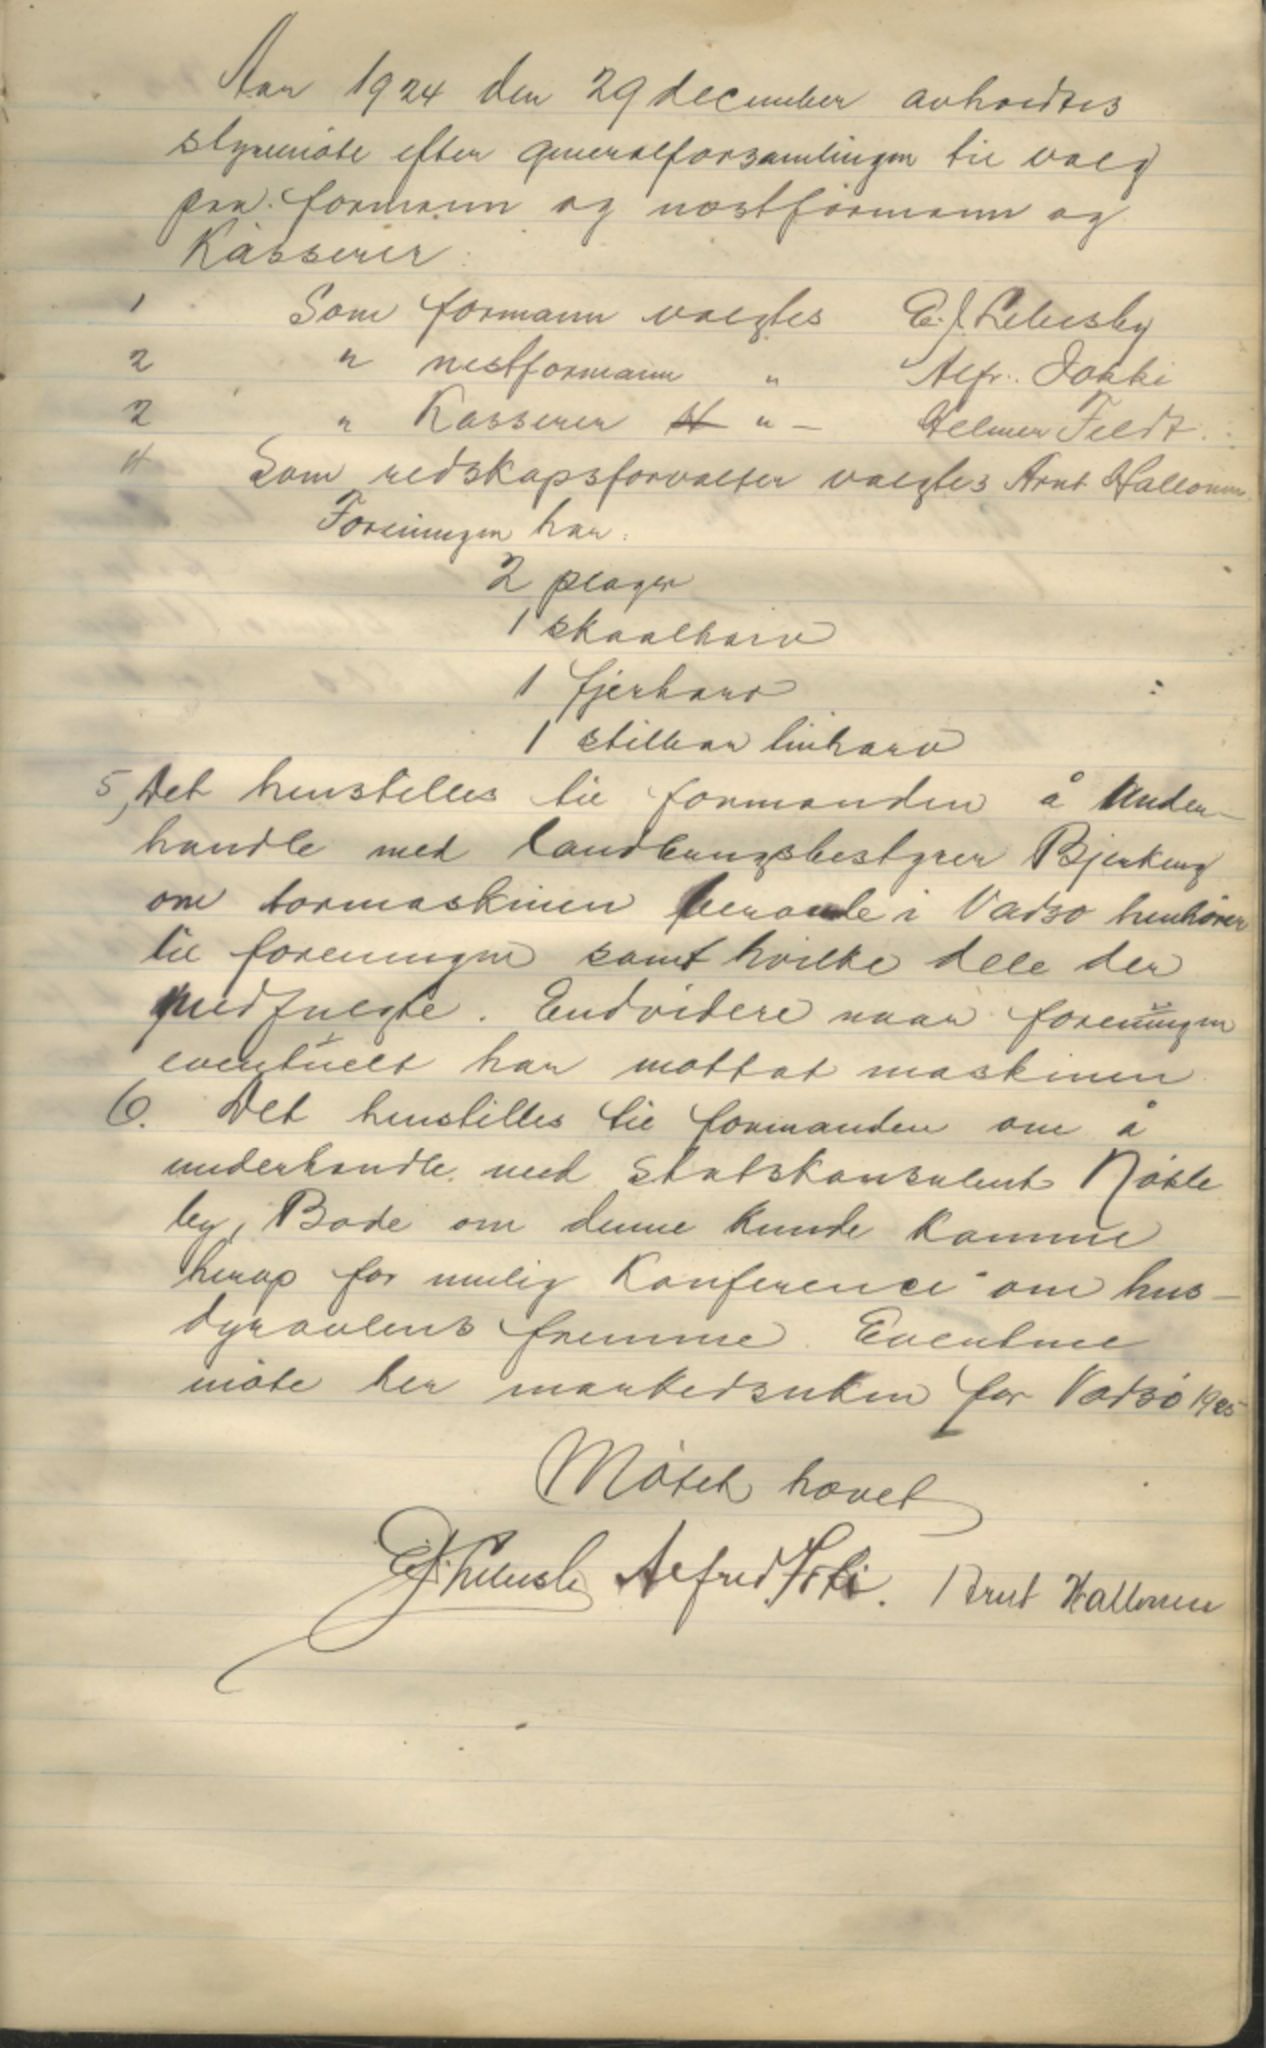 Aar 1924 den 29 december avholdtes
styremöte efter generalforsamlingen til valg
paa formann og næstformann og
Kasserer
1 Som formann valgtes E. J. Lebesby
2 " nestformann " Alfr. Jokki
2 " Kasserer " — Helmer Feldt.
4 Som redskapsforvalter valgtes Arnt Hallonen
Foreningen har:
2 ploger
1 skaalharv
1 fjerharv
1 stilbar linharv
5, Det henstilles til formanden å under-
handle med landbruksbestyrer Bjerkeng
om tormaskinen beroende i Vadsö henhörer
til foreningen samt hvilke dele der
medfuldte. Endvidere naar foreningen
eventuelt har mottat maskinen
6. Det henstilles til formanden om å
underhandle med Statskonsulent Nökle
by, Bodö om denne kunde komme
herop for mulig Konference om hus-
dyravlens fremme. Eventuel
möte her markedsuken for Vadsö 1925
Mötet hævet
E. J. Lebesby Alfred Jokki. Arnt Hallonen